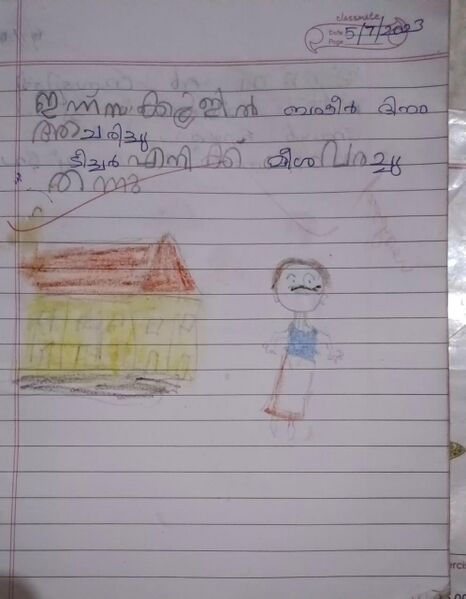 classmate
Date 5/7/2023
Page
ഇന്ന് സ്ക്കൂളിൽ ബഷീർ ദിനം
ആചരിച്ചു
ടീച്ചർ എനിക്ക് മീശ വരച്ചു
തന്നു